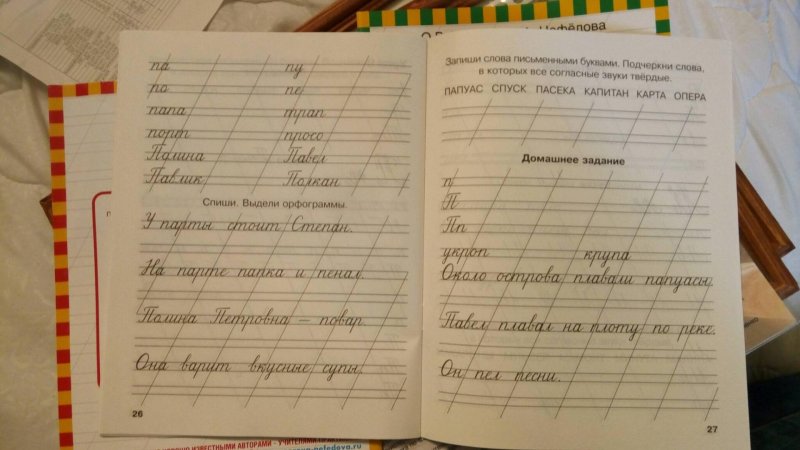 Нефёдова
па пу
ро ре
папа трап
порт просо
Полина Павел
Павлик Полкан
Спиши. Выдели орфограммы.
У парты стоит Степан.
На парте папка и пенал.
Полина Петровна — повар.
Она варит вкусные супы.
26
Запиши слова письменными буквами. Подчеркни слова,
в которых все согласные звуки твёрдые.
ПАПУАС СПУСК ПАСЕКА КАПИТАН КАРТА ОПЕРА
Домашнее задание
п
П
Пп
укроп крупа
Около острова плавали папуасы.
Павел плавал на плоту по реке.
Он пел песни.
27
ИЗВЕСТНЫМИ АВТОРАМИ - УЧИТЕЛЯМИ